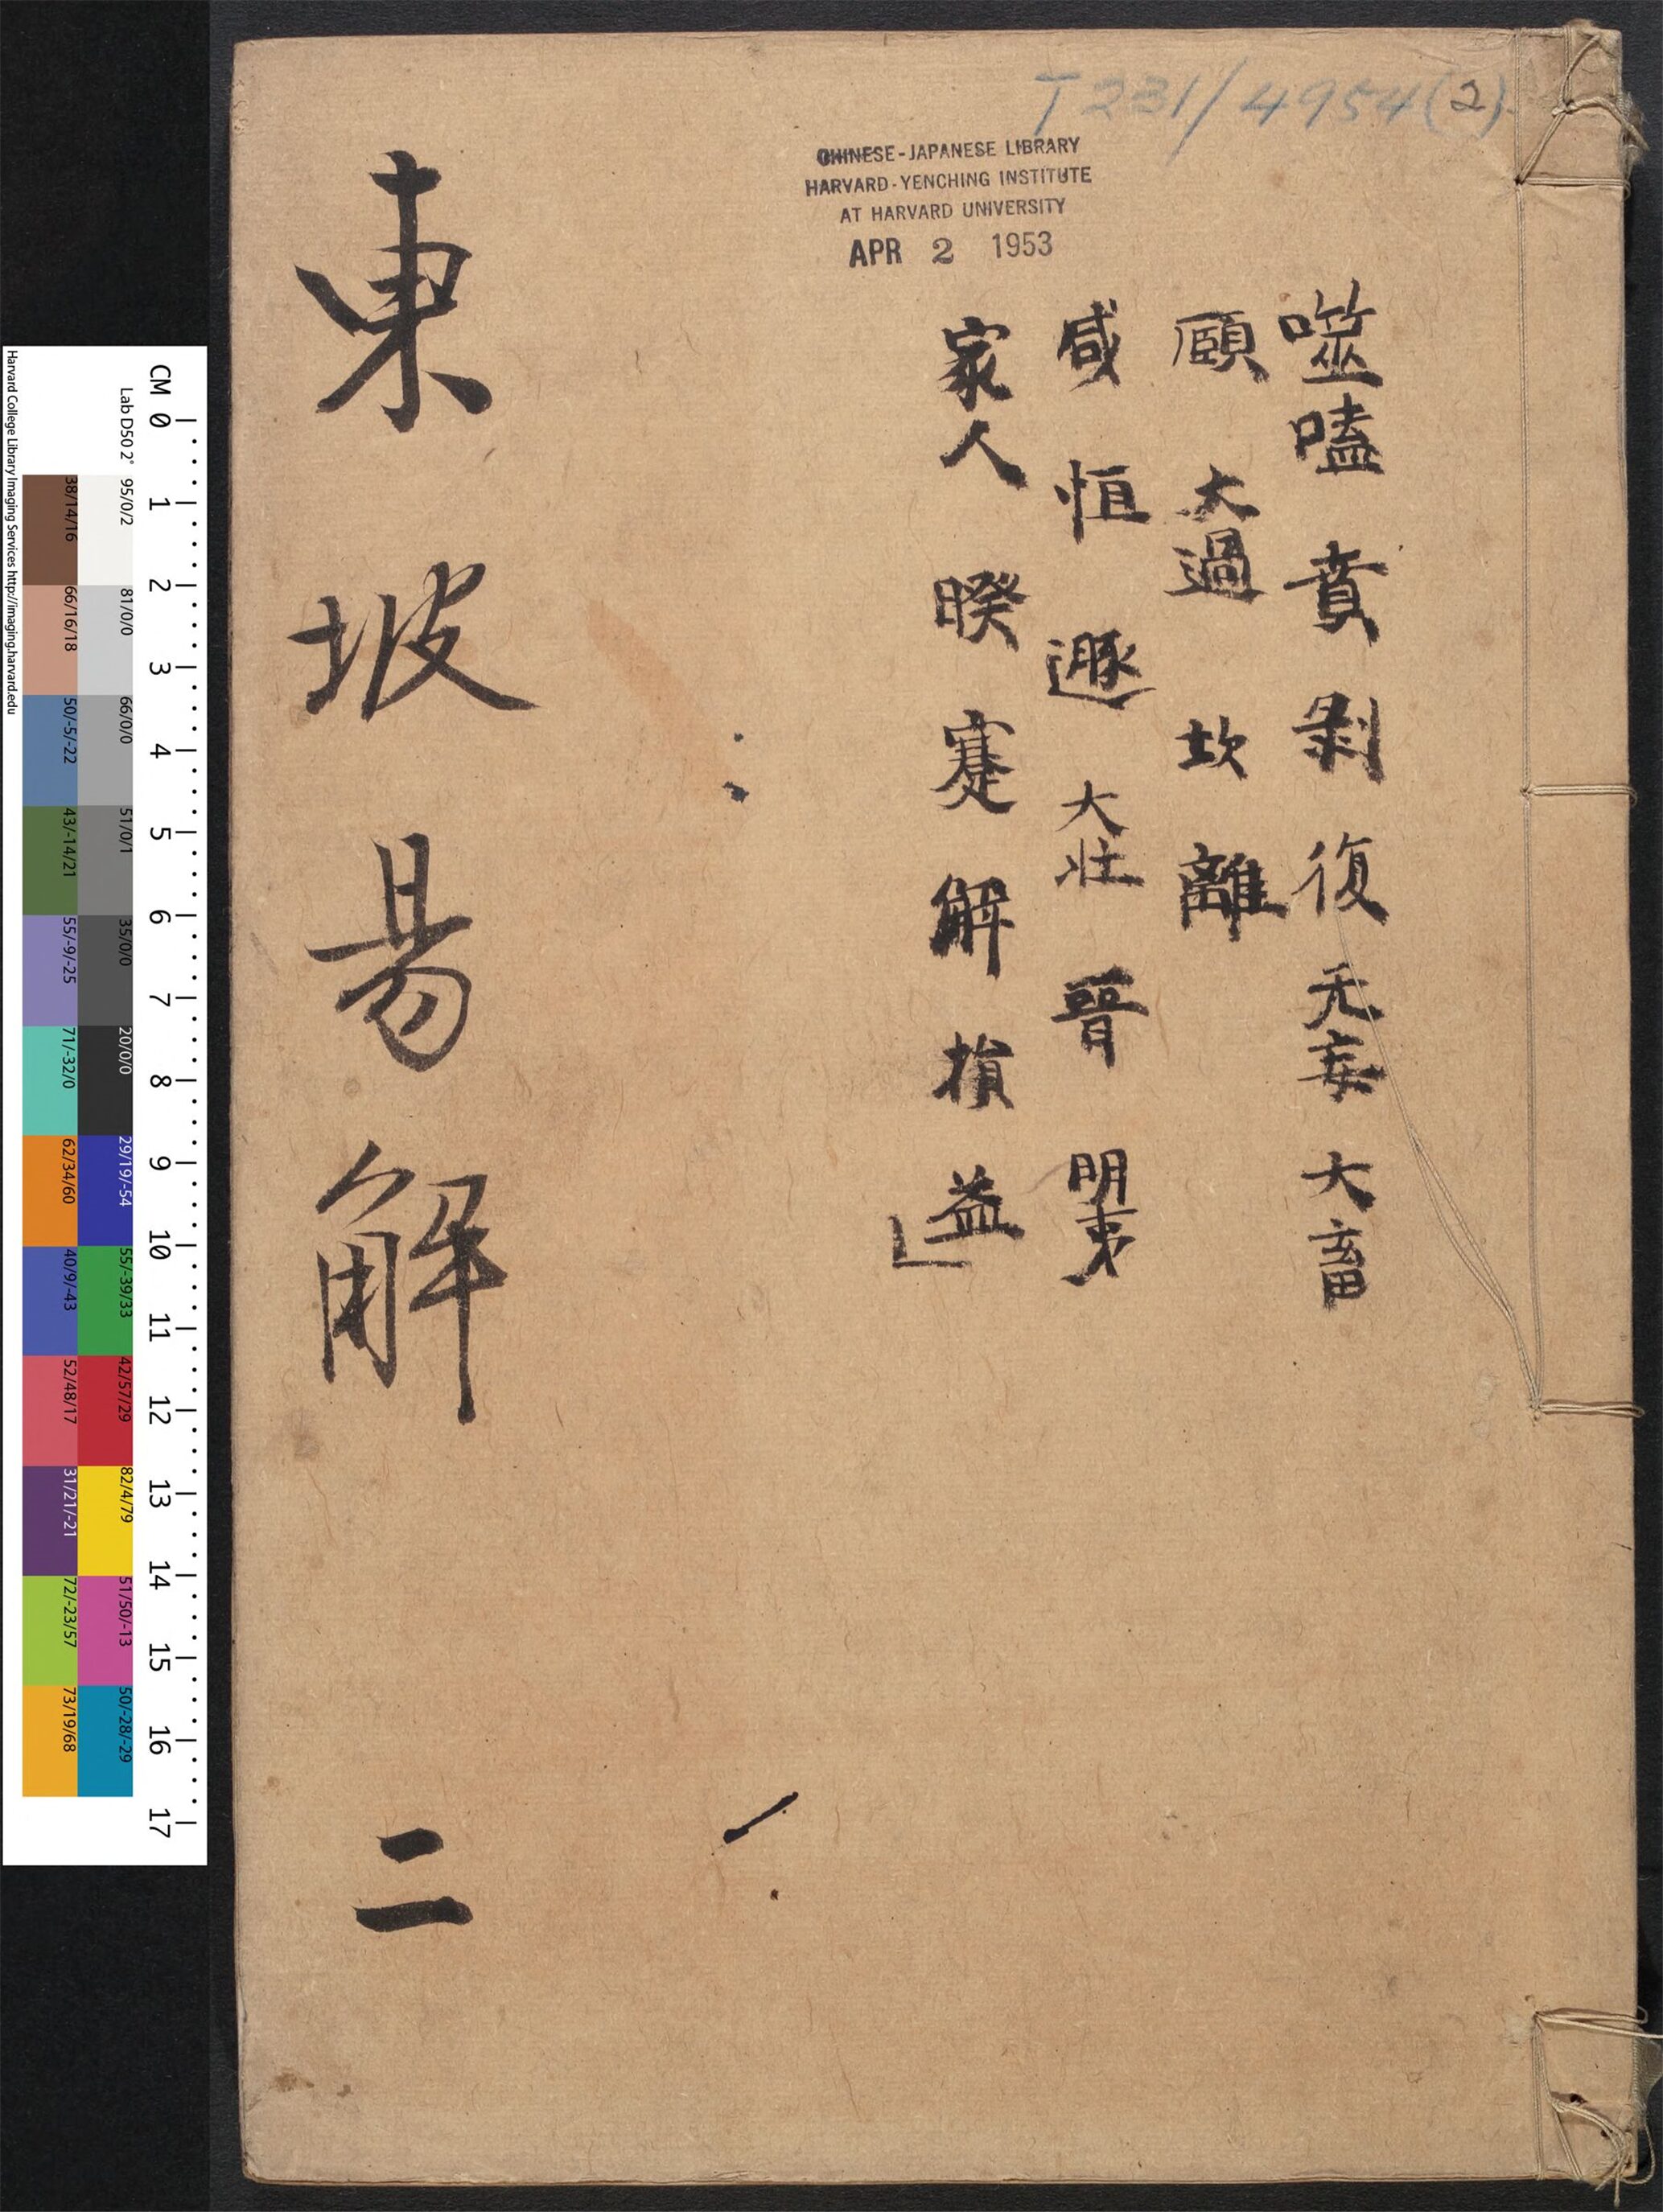 T231/4954(2)
CHINESE-JAPANESE LIBRARY
HARVARD-YENCHING INSTITUTE
AT HARVARD UNIVERSITY
APR 2 1953
噬嗑 賁 剝 復 无妄 大畜
頤 大過 坎 離
咸 恒 遯 大壯 晉 明夷
家人 睽 蹇 解 損 益
東坡易解 二
CM 0 1 2 3 4 5 6 7 8 9 10 11 12 13 14 15 16 17
Lab D50 2° 95/0/2 81/0/0 66/0/0 51/0/1 35/0/0 20/0/0 29/19/-54 55/-39/33 42/57/29 82/4/79 51/50/-13 50/-28/-29
38/14/16 66/16/18 50/-5/-22 43/-14/21 55/-9/-25 71/-32/0 62/34/60 40/9/-43 52/48/17 31/21/-21 72/-23/57 73/19/68
Harvard College Library Imaging Services http://imaging.harvard.edu